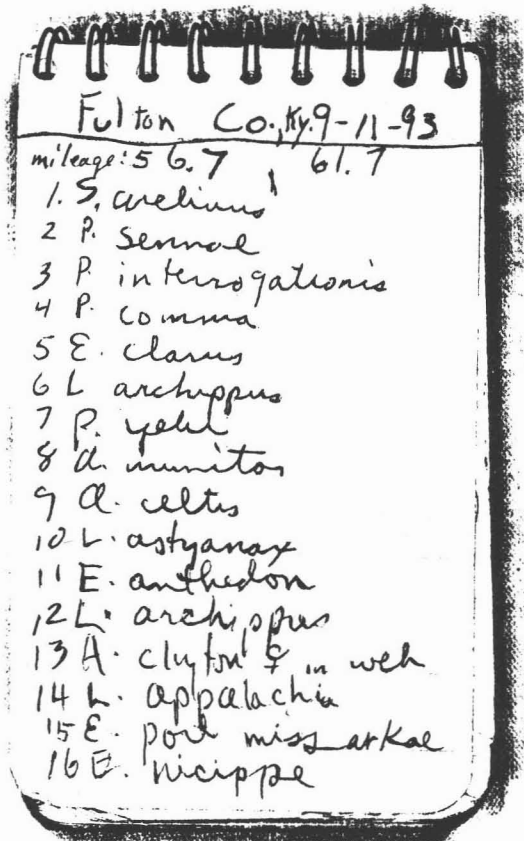 Fulton Co., Ky. 9-11-93
mileage: 56.7 61.7
1. S.
2 P. sennae
3 P. interrogationis
4 P. comma
5 E. clarus
6 L archippus
7 P. yehl
8 A. numitor
9 A. celtis
10 L. astyanax
11 E. anthedon
12 L. archippus
13 A. clyton ♀ in web
14 L. appalachia
15 E. port missarkae
16 E. nicippe